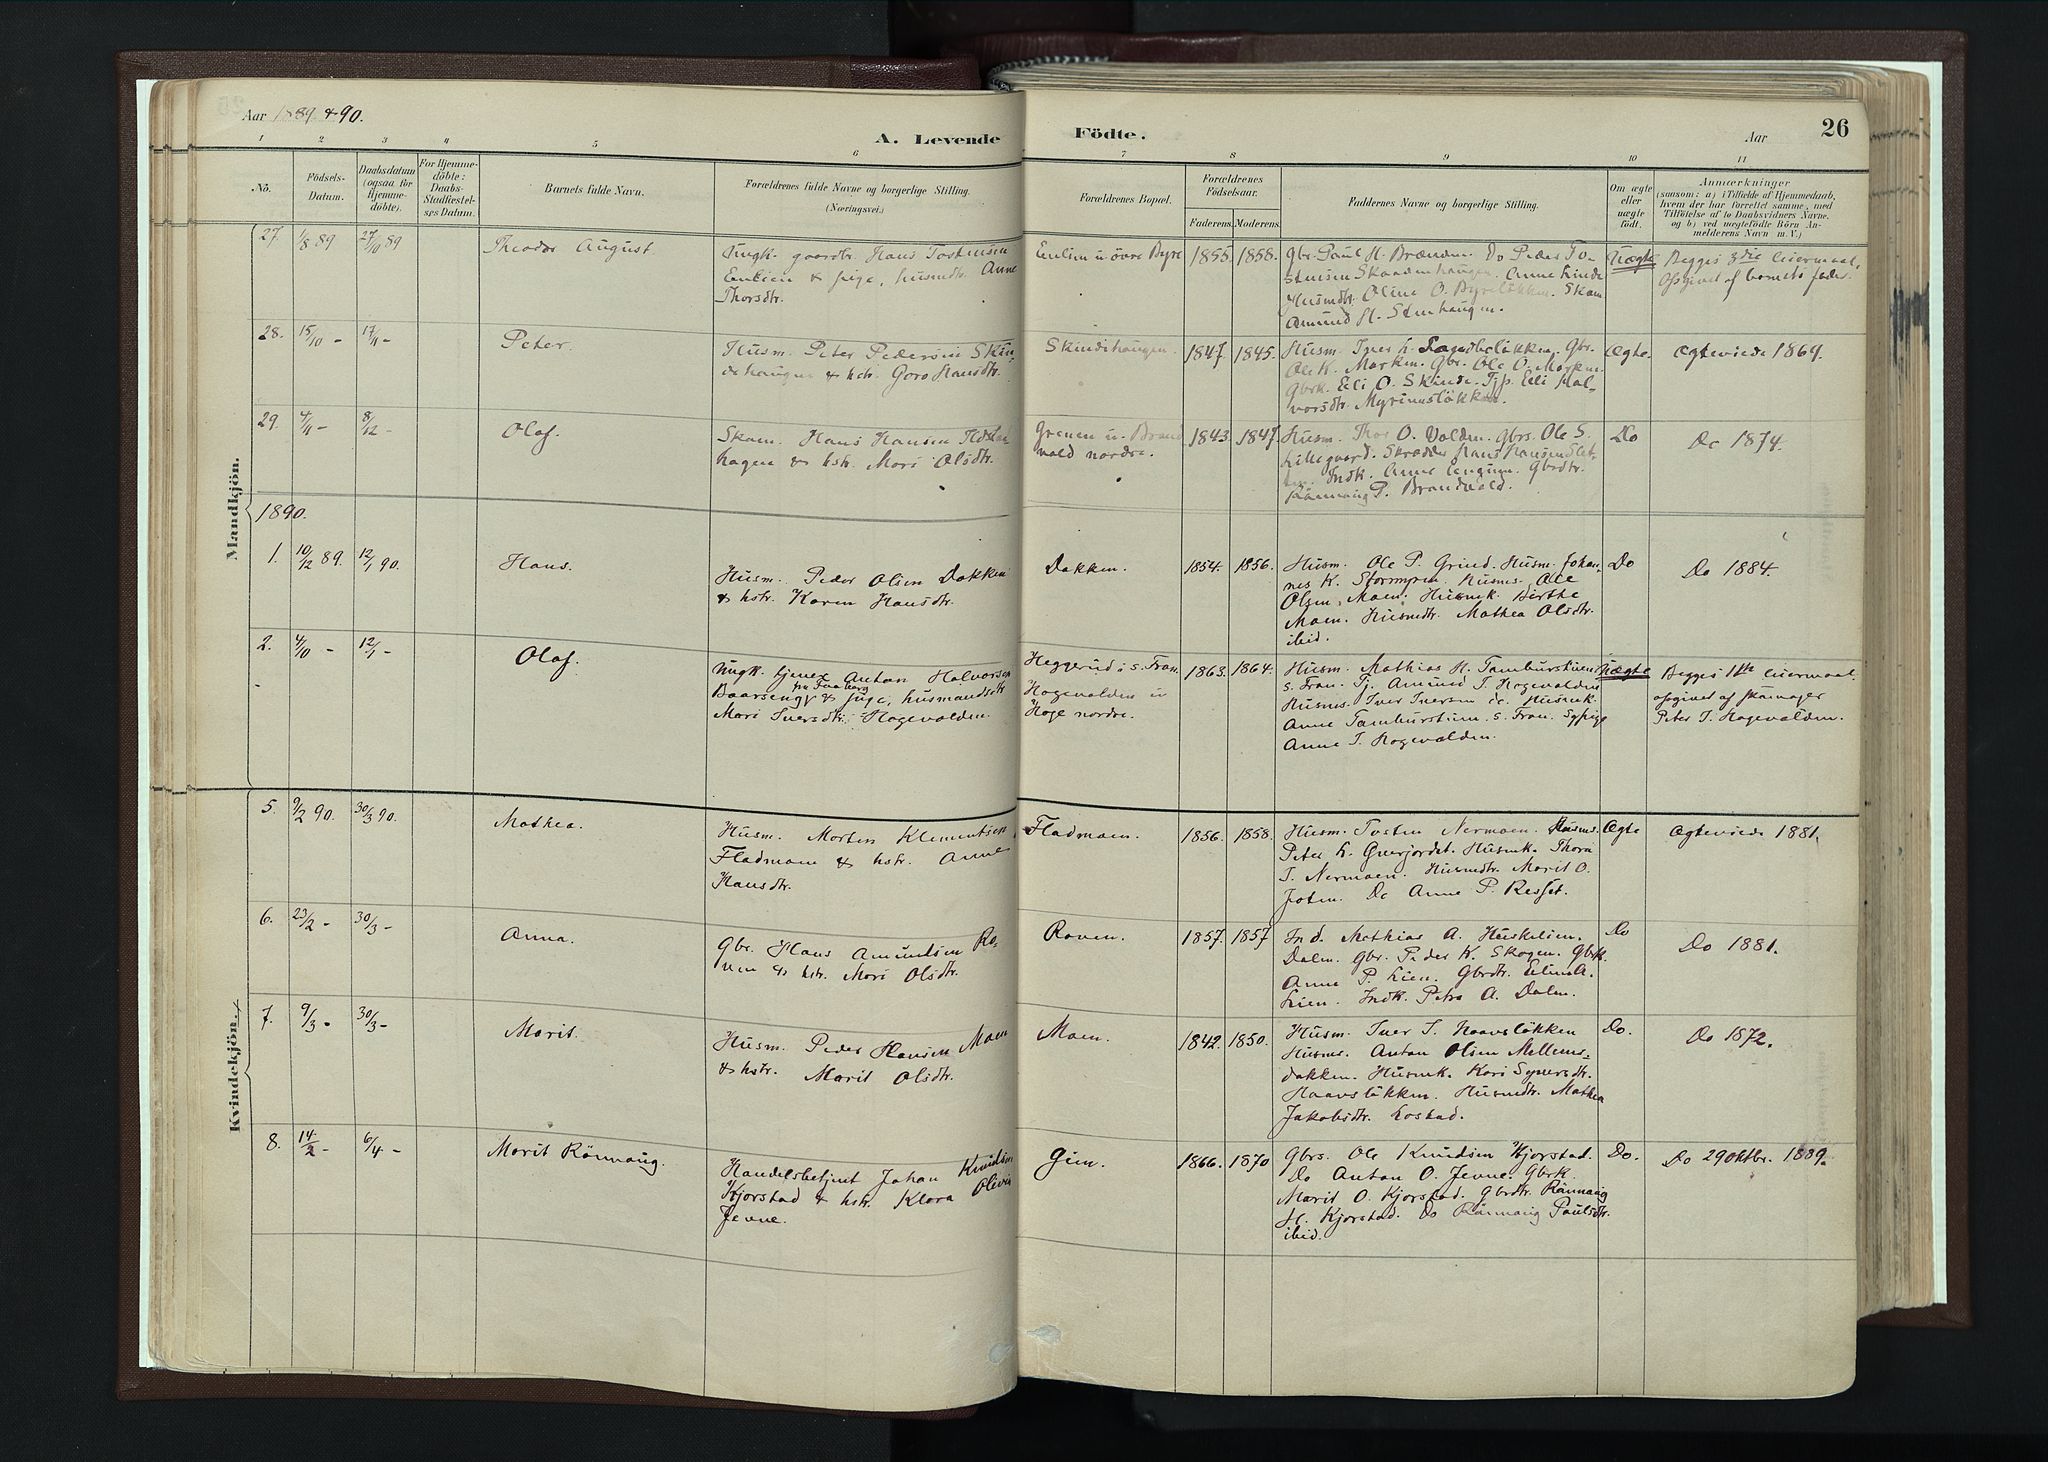 Aar 1889 & 90.
A. Levende Födte.
Aar
26
1 2 3 4 5 6 7 8 9 10 11
No.
Födsels-
Datum.
Daabsdatum
(ogsaa for
Hjemme-
döbte).
For Hjemme-
döbte:
Daabs-
Stadfæstel-
ses Datum.
Barnets fulde Navn.
Forældrenes fulde Navne og borgerlige Stilling.
(Næringsvei.)
Forældrenes Bopæl.
Forældrenes
Födselsaar.
Faderens. Moderens.
Faddernes Navne og borgerlige Stilling.
Om ægte
eller
uægte
födt.
Anmærkninger
(saasom: a) i Tilfælde af Hjemmedaab,
hvem der har forrettet samme, med
Tilföielse af to Daabsvidners Navne,
og b) ved uægtefödte Börn An-
melderens Navn m. V.)
Mandkjön.
27. 1/8 89 27/10 89
Theodor August
Ungk. gaardbr. Hans Tostensen
Enlien & pige, husmdtr. Anne
Thorsdtr.
Enlien u övre Byre
1855. 1858.
Gbr. Paul H. Brænden. Do Peder To-
stensen Skaadenhaugen. Anne Linde
Husmdtr. Oline O. Byreløkken. Skom
Amund H. Stenhaugen.
Uægte
Begges 3die Leiermaal,
Opgivet af barnets fader.
28. 15/10 - 17/11 -
Peter.
Husm. Peter Pedersen Skin-
dehaugen & hstr. Goro Hansdtr.
Skindehaugen.
1847. 1845.
Husm. Iver L. Sandbeløkken. Gbr.
Ole K. Morken. Gbr. Ole O. Morken.
Gbrk. Eli O. Skinde. Tjp. Eli Hal-
vorsdtr. Myrumsløkken.
Ægte.
Ægteviede 1869.
29. 4/11 - 8/12 -
Olaf.
Skom. Hans Hansen
hagen & hstr. Mari Olsdtr.
Grenen u. Brand
vold nordre.
1843. 1847.
Husm. Thor O. Volden. Gbrs. Ole S.
Lillegaard. Skrædder Hans Hansen
Indk. Anne Engum. Gbrdtr.
Rönnaug P. Brandvold.
Do
Do 1874.
1890.
1. 10/12 89. 12/1 90.
Hans.
Husm. Peder Olsen Dakken
& hstr. Karen Hansdtr.
Dakken.
1854. 1856.
Husm. Ole P. Grind. Husm. Johan-
nes K. Stormyren. Husms. Ole
Olsen, Moen. Husmk. Birthe
Moen. Husmdtr. Mathea Olsdtr.
ibid.
Do
Do 1884.
2. 4/10 - 12/1 -
Olaf.
Ungk. tjener Anton Halvorsen
fra Faaberg
Baarseng & pige, husmandsdtr
Mari Iversdtr. Hogevolden.
Heggerud i s. Fron.
Hogevolden u
Hoge nordre.
1863. 1864.
Husm. Mathias H. Tamburstuen
s. Fron. Tj. Amund I. Hogevolden
Husms. Iver Iversen do. Husmk.
Anne Tamburstuen. s. Fron. Sypige
Anne I. Hogevolden.
Uægte
Begges 1ste Leiermaal.
opgivet af skomager
Peter I. Hogevolden.
Kvindekjön.
5. 9/2 90. 30/3 90.
Mathea.
Husm. Morten Klementsen
Fladmoen & hstr. Anne
Hansdtr.
Fladmoen.
1856. 1858.
Husm. Tosten Nermoen. Husms.
Peter L. Gverjordet. Husmk. Thora
T. Nermoen. Husmdtr. Marit O.
Joten. Do Anne P. Resset.
Ægte
Ægteviede 1881.
6. 23/2 - 30/3 -
Anna.
Gbr. Hans Amundsen Ro-
ven & hstr. Mari Olsdtr.
Roven.
1857. 1857
Ind. Mathias A. Huskelien.
Dalen. Gbr. Peder K. Skogen. Gbrk.
Anne P. Lien. Gbrdtr. Elina A.
Lien. Indk. Petra A. Dalen.
Do
Do 1881.
7. 9/3 - 30/3 -
Marit.
Husm. Peder Hansen Moen
& hstr. Marit Olsdtr.
Moen.
1842. 1850.
Husm. Iver I. Haavsløkken
Husms. Anton Olsen Mellems-
dakken. Husmk. Kari Syversdtr.
Haavsløkken. Husmdtr. Mathea
Jakobsdtr. Lostad.
Do.
Do 1872.
8. 14/2 - 6/4 -
Marit Rönnaug.
Handelsbetjent Johan Knudsen
Kjorstad & hstr. Klara Olevine
Jevne.
Gien.
1866. 1870
Gbrs. Ole Knudsen Kjorstad.
Do Anton O. Jevne. Gbrk.
Marit O. Kjorstad. Gbrdtr. Rönnaug
H. Kjorstad. Do Rönnaug Paulsdtr.
ibid.
Do.
Do 29 oktbr. 1889.